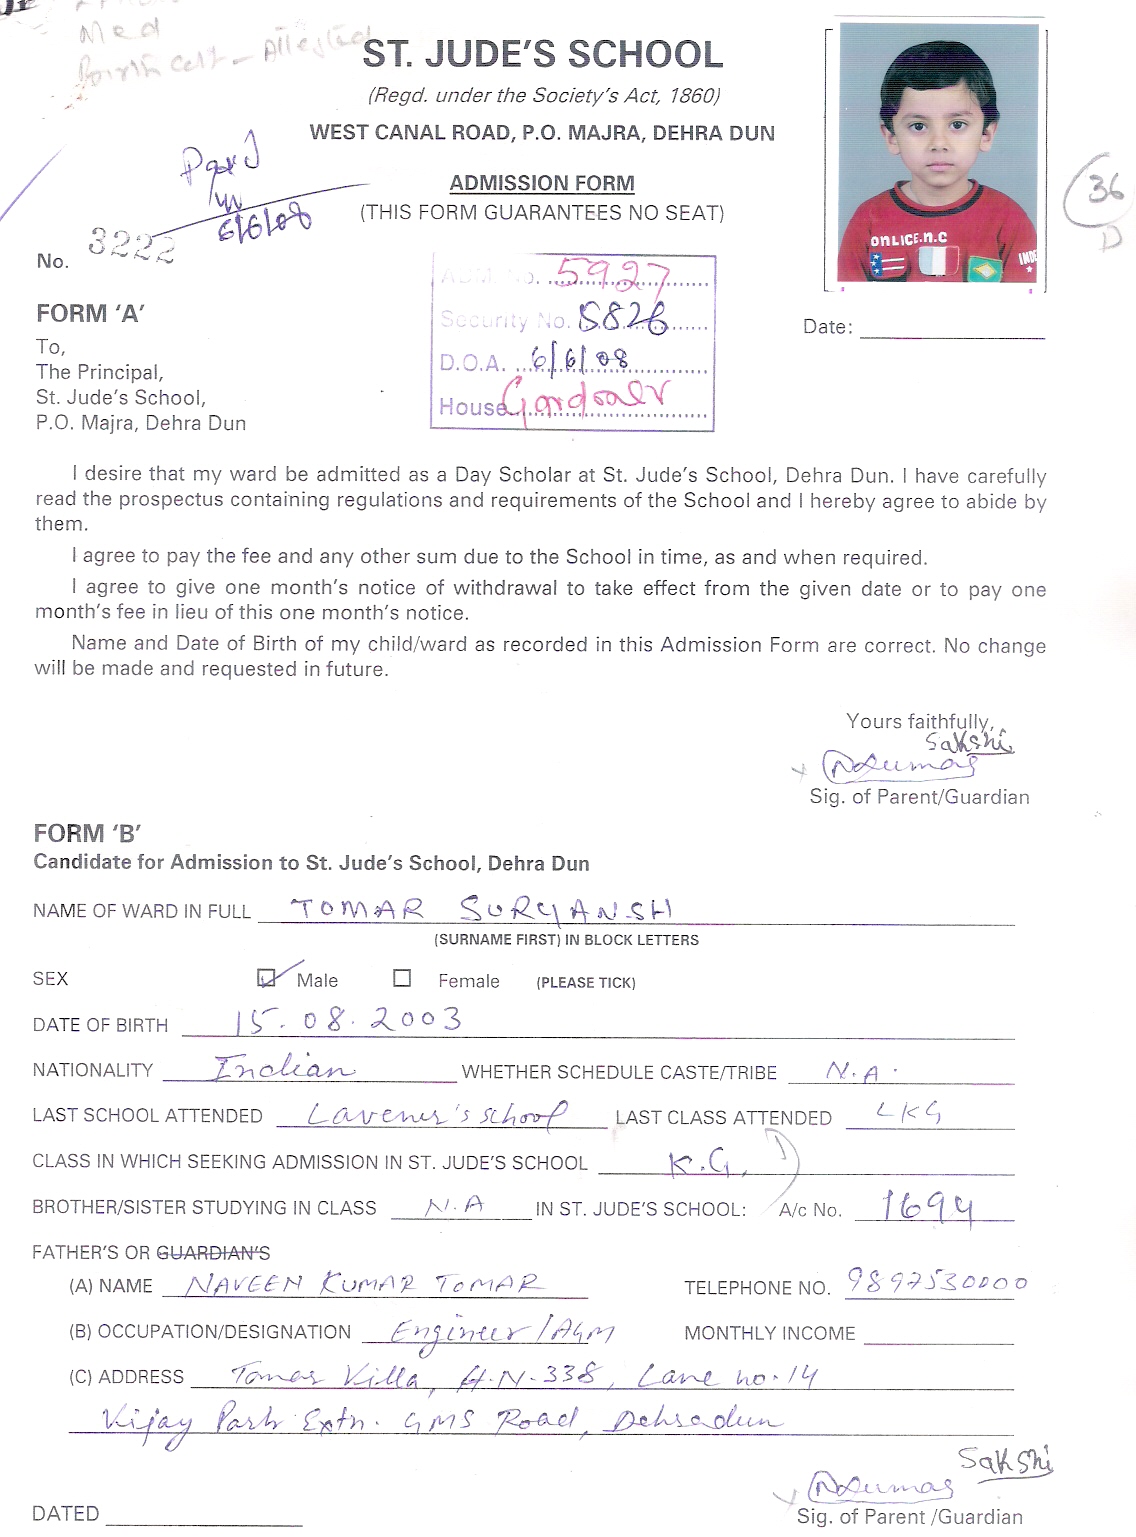 Med
Birth Cert - Attested
ST. JUDE'S SCHOOL
(Regd. under the Society's Act, 1860)
WEST CANAL ROAD, P.O. MAJRA, DEHRA DUN
ADMISSION FORM
(THIS FORM GUARANTEES NO SEAT)
6/6/08
36
D
ONLICE.N.C
No. 3222
ADM. No. 5927
Security No. 5826
D.O.A. 6/6/08
House
FORM 'A'
Date:
To,
The Principal,
St. Jude's School,
P.O. Majra, Dehra Dun
I desire that my ward be admitted as a Day Scholar at St. Jude's School, Dehra Dun. I have carefully
read the prospectus containing regulations and requirements of the School and I hereby agree to abide by
them.
I agree to pay the fee and any other sum due to the School in time, as and when required.
I agree to give one month's notice of withdrawal to take effect from the given date or to pay one
month's fee in lieu of this one month's notice.
Name and Date of Birth of my child/ward as recorded in this Admission Form are correct. No change
will be made and requested in future.
Yours faithfully,
Sakshi
Sig. of Parent/Guardian
FORM 'B'
Candidate for Admission to St. Jude's School, Dehra Dun
NAME OF WARD IN FULL TOMAR SURYANSH
(SURNAME FIRST) IN BLOCK LETTERS
SEX Male Female (PLEASE TICK)
DATE OF BIRTH 15.08.2003
NATIONALITY Indian WHETHER SCHEDULE CASTE/TRIBE N.A.
LAST SCHOOL ATTENDED Lavener's school LAST CLASS ATTENDED LKG
CLASS IN WHICH SEEKING ADMISSION IN ST. JUDE'S SCHOOL K.G, D
BROTHER/SISTER STUDYING IN CLASS N.A IN ST. JUDE'S SCHOOL: A/c No. 1694
FATHER'S OR GUARDIAN'S
(A) NAME NAVEEN KUMAR TOMAR TELEPHONE NO. 9897530000
(B) OCCUPATION/DESIGNATION Engineer/AGM MONTHLY INCOME
(C) ADDRESS Tomar Villa, H.N.338, Lane no.14
Vijay Park Extn. GMS Road, Dehradun
Sakshi
DATED Sig. of Parent /Guardian